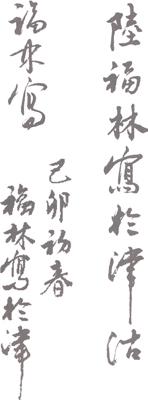 陸福林寫於津沽
福林寫
己卯初春
福林寫於津